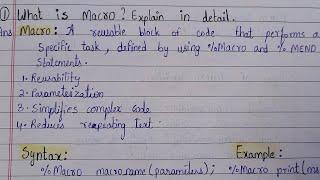 ① What is Macro? Explain in detail.
Ans Macro: A reusable block of code that performs a
Specific task, defined by using %Macro and %MEND
Statements.
1. Reusability
2. Parameterization
3. Simplifies complex code
4. Reduces repeating text.
Syntax: Example:
%Macro macroname(parameters); %Macro print(